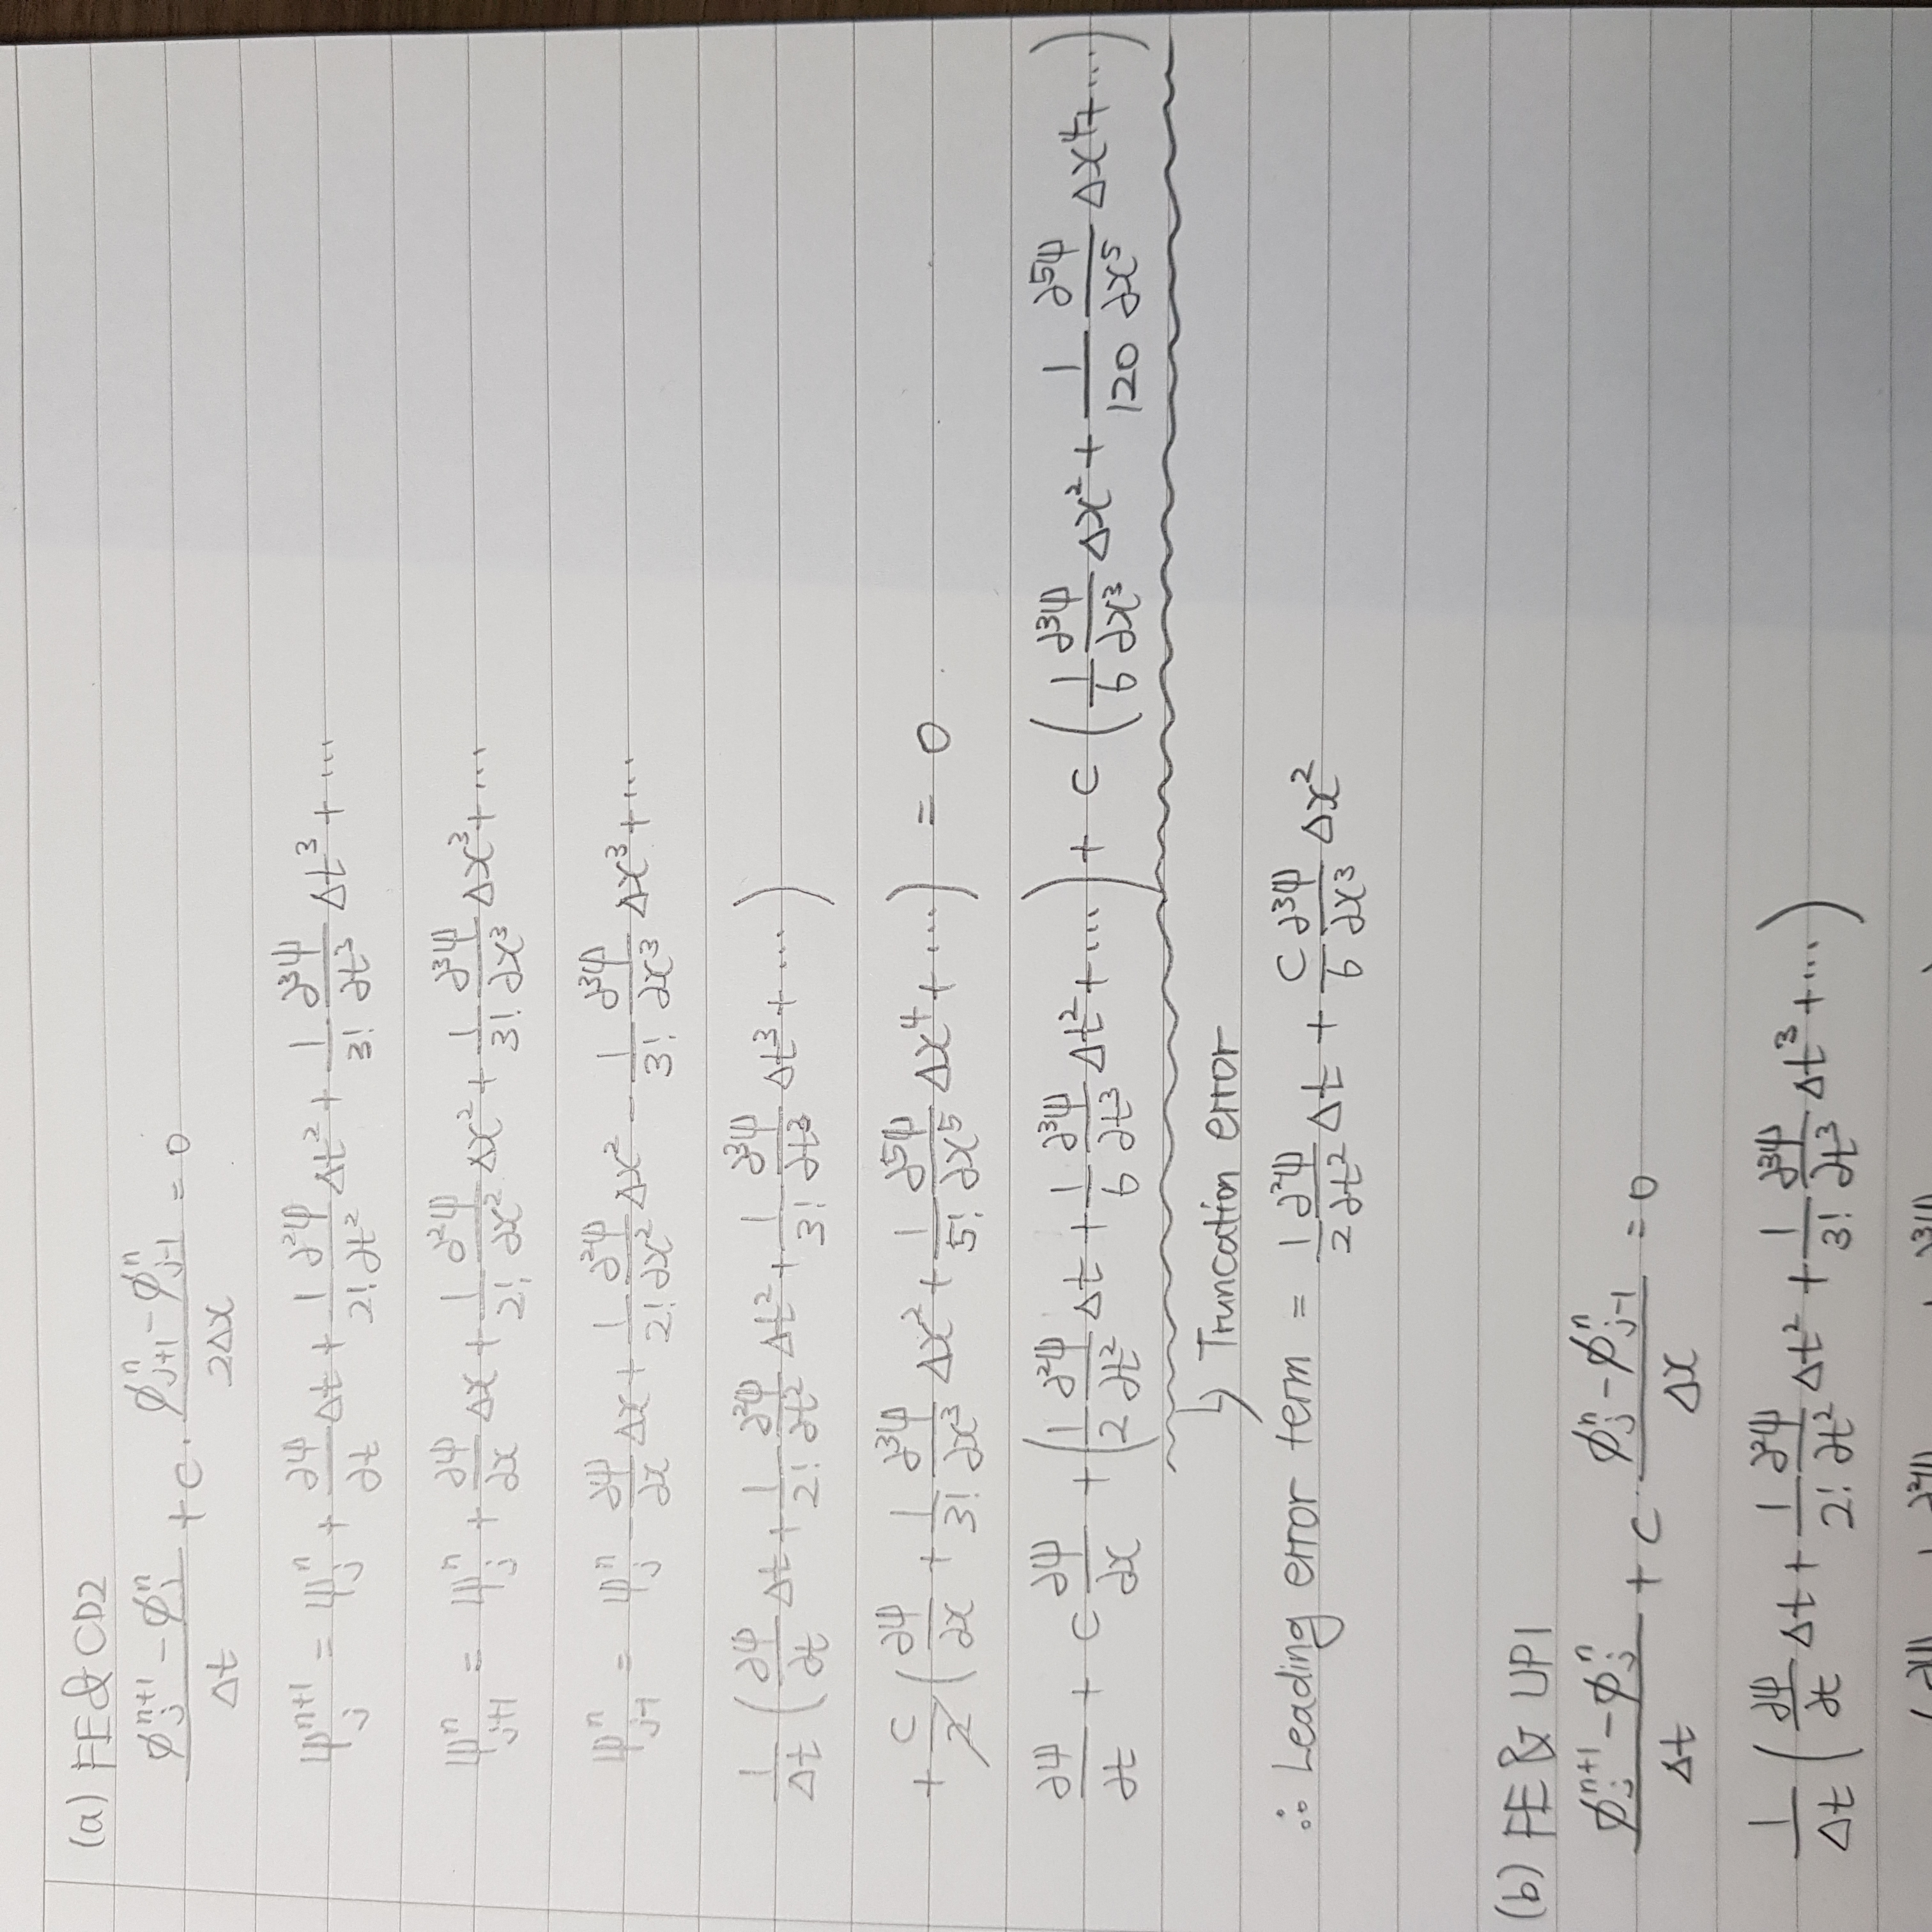 (a) FE & CD2
(ϕ_j^{n+1} - ϕ_j^n)/Δt + c · (ϕ_{j+1}^n - ϕ_{j-1}^n)/2Δx = 0
ψ_j^{n+1} = ψ_j^n + ∂ψ/∂t Δt + 1/2! ∂²ψ/∂t² Δt² + 1/3! ∂³ψ/∂t³ Δt³ + ...
ψ_{j+1}^n = ψ_j^n + ∂ψ/∂x Δx + 1/2! ∂²ψ/∂x² Δx² + 1/3! ∂³ψ/∂x³ Δx³ + ...
ψ_{j-1}^n = ψ_j^n - ∂ψ/∂x Δx + 1/2! ∂²ψ/∂x² Δx² - 1/3! ∂³ψ/∂x³ Δx³ + ...
1/Δt (∂ψ/∂t Δt + 1/2! ∂²ψ/∂t² Δt² + 1/3! ∂³ψ/∂t³ Δt³ + ...)
+ c/2 (∂ψ/∂x + 1/3! ∂³ψ/∂x³ Δx² + 1/5! ∂⁵ψ/∂x⁵ Δx⁴ + ...) = 0
∂ψ/∂t + c ∂ψ/∂x + (1/2 ∂²ψ/∂t² Δt + 1/6 ∂³ψ/∂t³ Δt² + ...) + c (1/6 ∂³ψ/∂x³ Δx² + 1/120 ∂⁵ψ/∂x⁵ Δx⁴ + ...)
↳ Truncation error
∴ Leading error term = 1/2 ∂²ψ/∂t² Δt + c/6 ∂³ψ/∂x³ Δx²
(b) FE & UP1
(ϕ_j^{n+1} - ϕ_j^n)/Δt + c · (ϕ_j^n - ϕ_{j-1}^n)/Δx = 0
1/Δt (∂ψ/∂t Δt + 1/2! ∂²ψ/∂t² Δt² + 1/3! ∂³ψ/∂t³ Δt³ + ...)